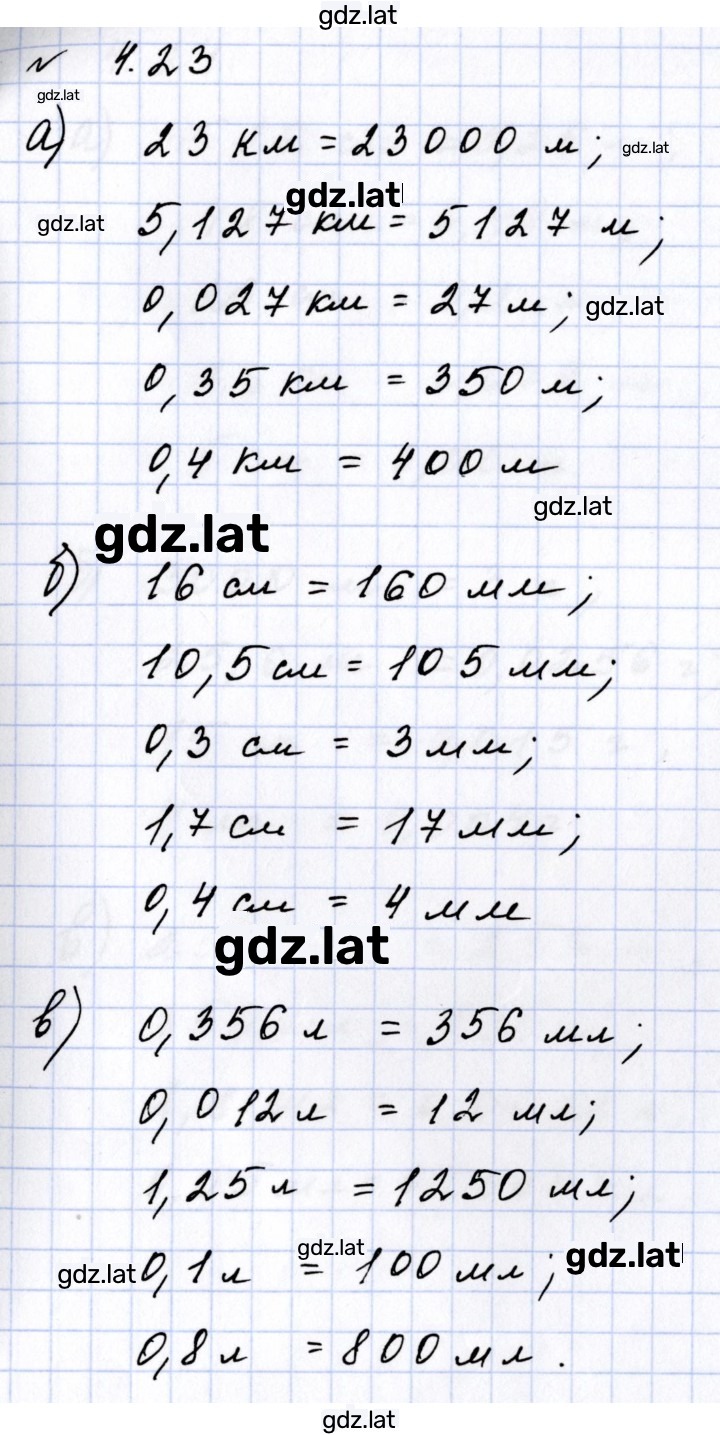 gdz.lat
№ 4.23
gdz.lat
а) 23 км = 23000 м; gdz.lat
gdz.lat
gdz.lat 5,127 км = 5127 м;
0,027 км = 27 м; gdz.lat
0,35 км = 350 м;
0,4 км = 400 м
gdz.lat
gdz.lat
б) 16 см = 160 мм;
10,5 см = 105 мм;
0,3 см = 3 мм;
1,7 см = 17 мм;
0,4 см = 4 мм
gdz.lat
в) 0,356 л = 356 мл;
0,012 л = 12 мл;
1,25 л = 1250 мл;
gdz.lat
gdz.lat 0,1 л = 100 мл; gdz.lat
0,8 л = 800 мл.
gdz.lat